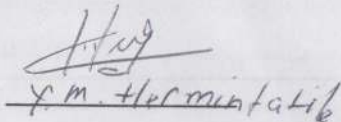 Y. m. Hermintatik